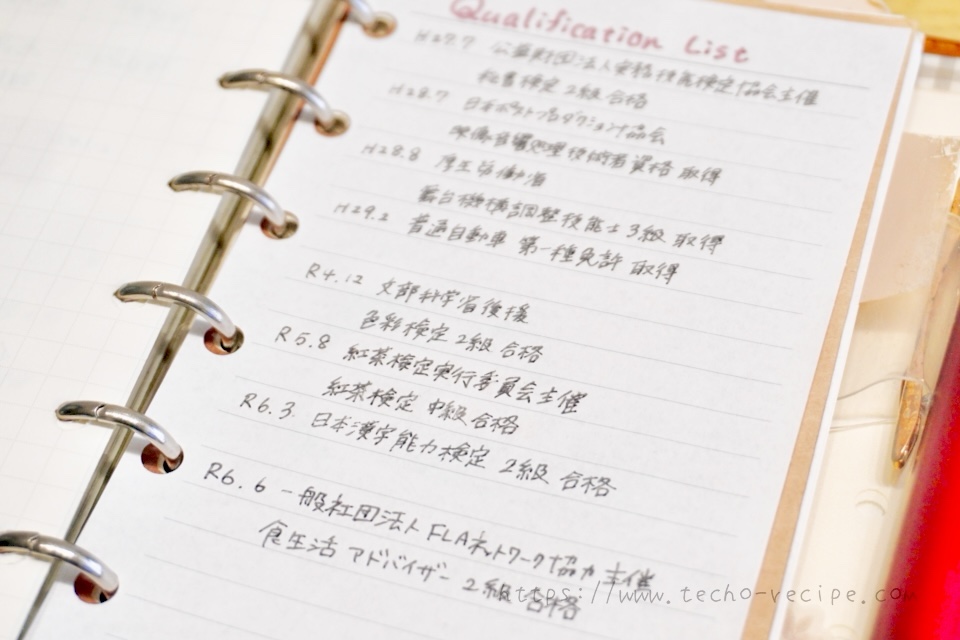 Qualification List
H27.7 公益財団法人実務技能検定協会主催
秘書検定 2級 合格
H28.7 日本ポストプロダクション協会
映像音響処理技術者資格 取得
H28.8 厚生労働省
舞台機構調整技能士 3級 取得
H29.2 普通自動車 第一種免許 取得
R4.12 文部科学省後援
色彩検定 2級 合格
R5.8 紅茶検定実行委員会主催
紅茶検定 中級 合格
R6.3 日本漢字能力検定 2級 合格
R6.6 一般社団法人 FLAネットワーク協力 主催
食生活アドバイザー 2級 合格
https://www.techo-recipe.com